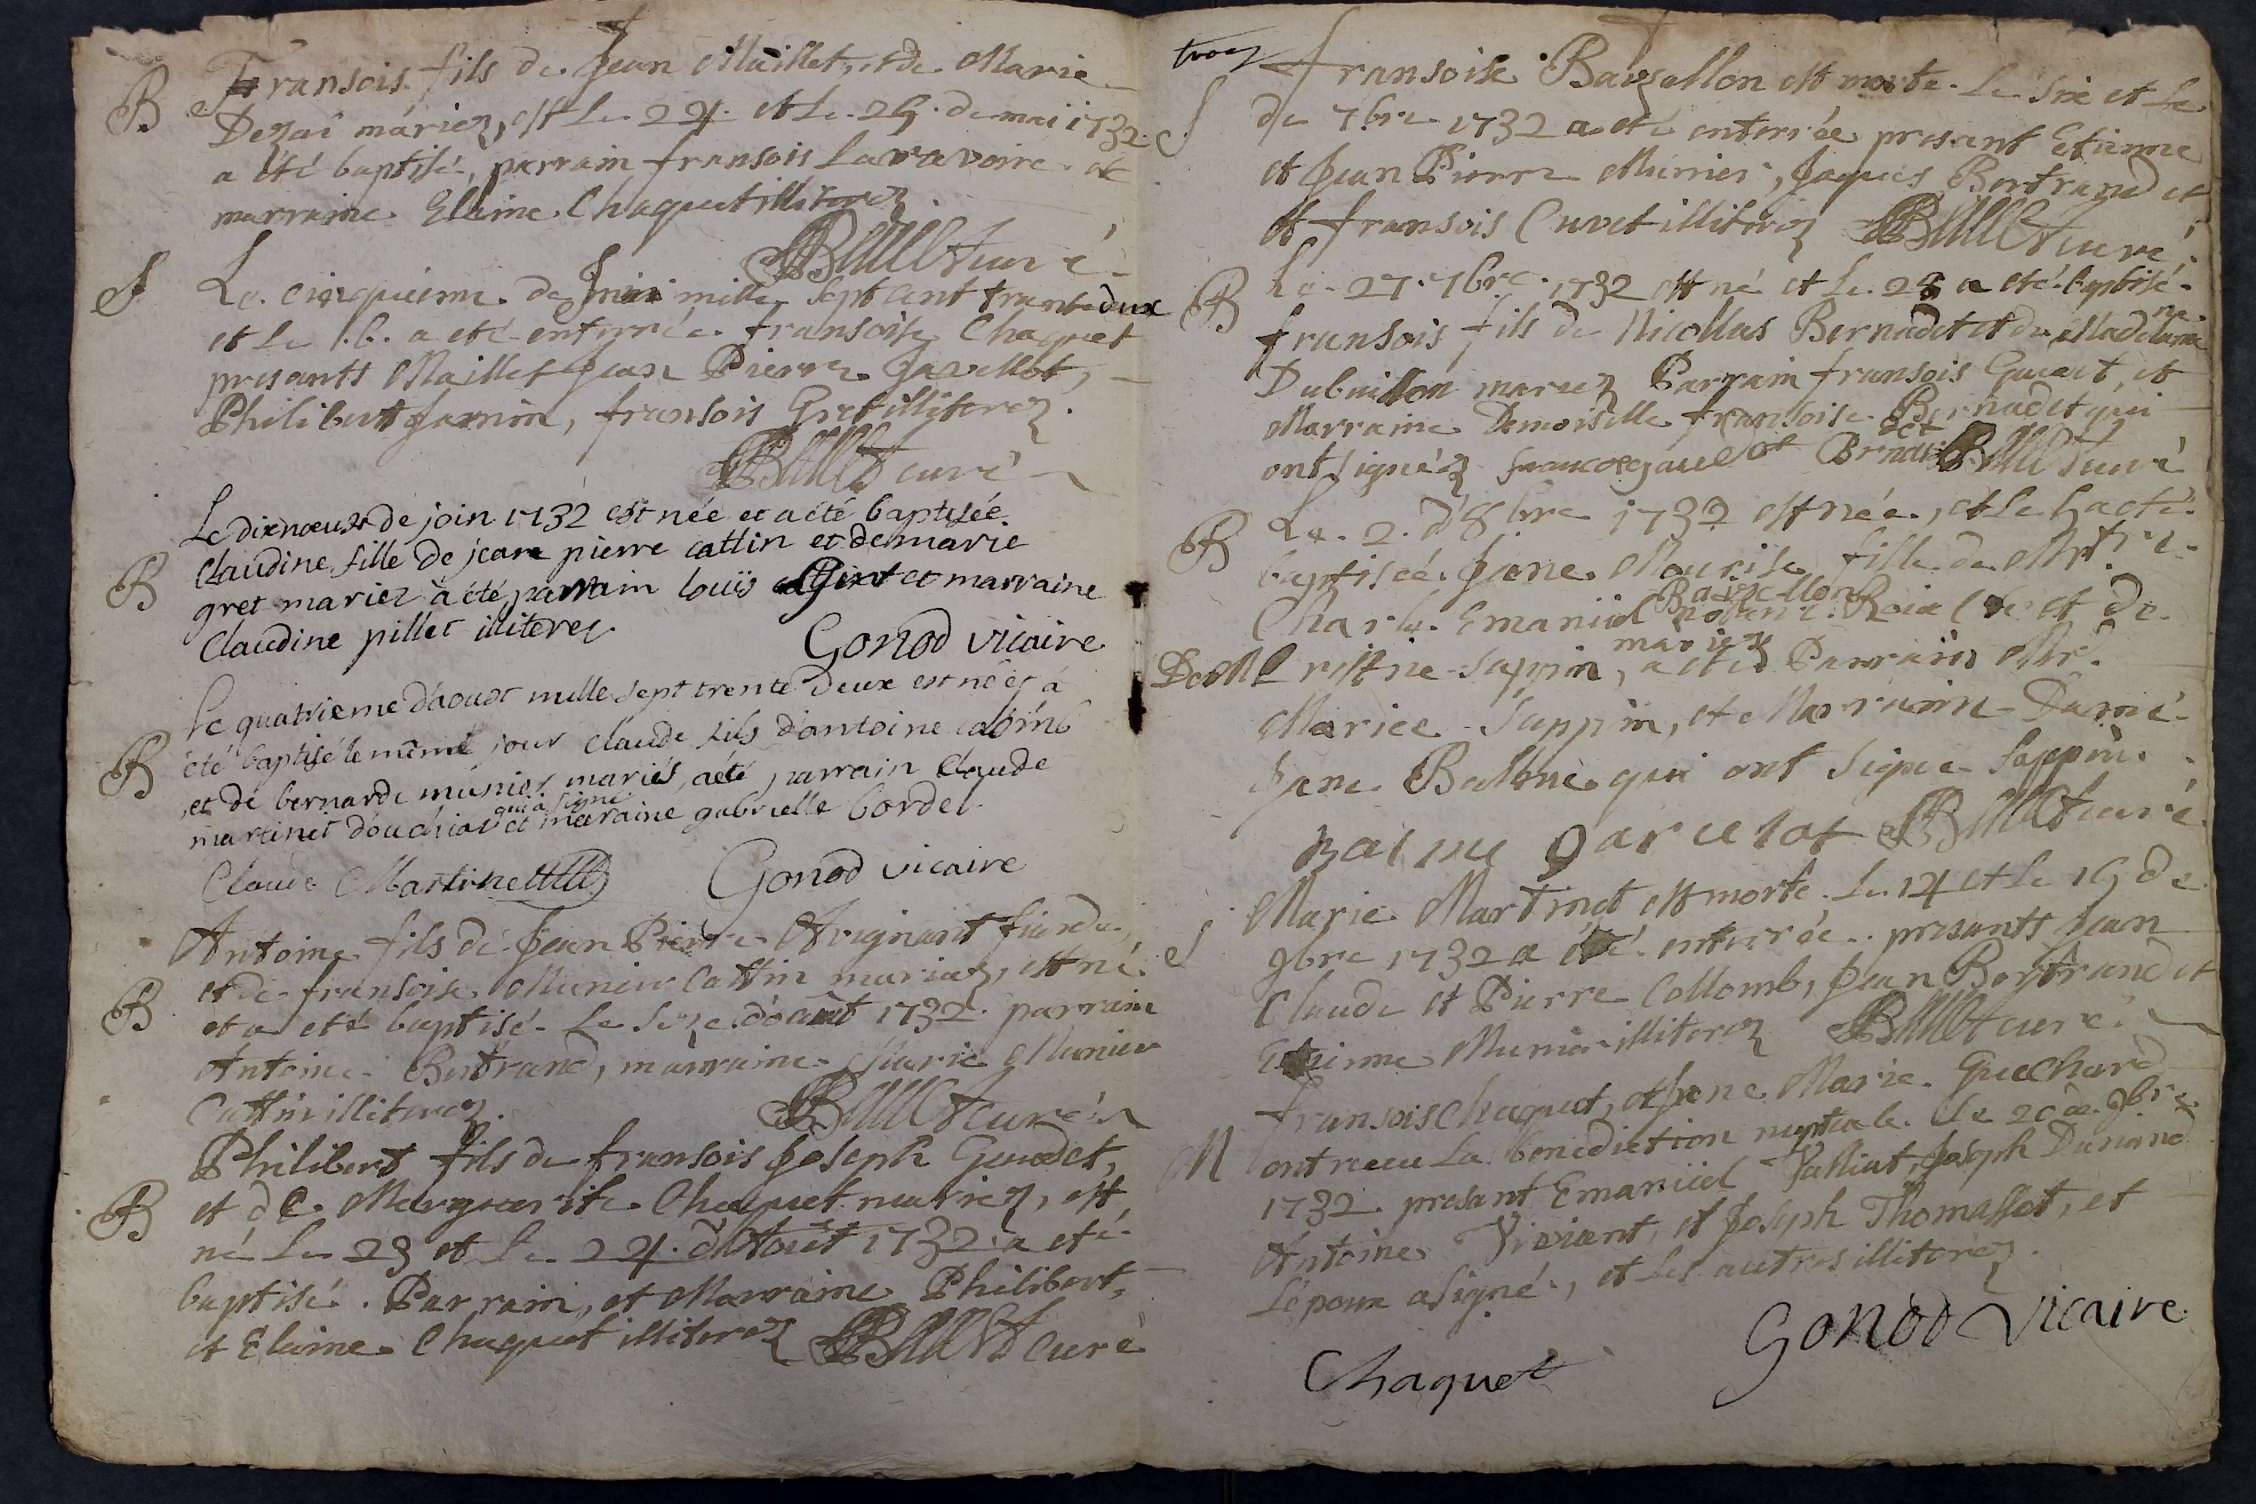 B Fransois fils de Jean Maillet, et de Marie
Dezaî mariez, est le 24. et le 25. de mai 1732.
a été baptisé, parrain fransois Lavavoire et
marraine Elaine Chaquet illiterez
curé
S Le cinquieme de Juin mille sept cent trante deux
et le .6. a eté enterrée fransoise Chaquet
presants Maillet Jean Pierre Javellot,
Philibert Jamin, fransois Gret illiterez.
curé
Le dixneuf de join 1732 est née et a été baptisée
B Claudine fille de jean pierre cattin et de marie
gret mariez à été parrain louïs et marraine
Claudine pillet illiterez
Gonod vicaire
le quatrieme d'aoust mille sept trente deux est né et a
B été baptisé le même jour claude fils d'antoine colomb
et de bernarde munier mariés, aété parrain claude
qui a signé
martinet d'ouchias et maraine gabrielle bordel
Claude Martinet Gonod vicaire
Antoine fils de Jean Pierre Avignant
B et de fransoise Munier Cattin mariez, est né
et a eté baptisé le seze d'oaût 1732. parrain
Antoine Bertrand, marraine Marie Munier
Cattin illiterez.
curé
Philibert fils de fransois Joseph Gaudet,
B et de Marguerite Chaquet mariez, est,
né le 23 et le 24. d'Aoüt 1732 a eté
baptisé. Parrain, et Marraine Philibert,
et Elaine Chaquet illiterez curé
troy
fransoise Barzellon est morte le six et le
S de 7bre 1732 a eté enterrée presant Etienne
et Jean Pierre Munier, Jaques Bertrand et
et fransois Cuvet illiterez curé
B Le 27. 7bre 1732 est né et le a eté baptisé
ne
fransois fils de Nicollas Bernadet et de Madelaine
Dubuisson mariez Parrain fransois Guaut, et
Marraine Demoiselle fransoise Bernadet qui
ont signéz curé
B Le 2. d'8bre 1732 est née, et le 5 a eté
baptisée Jane Mourise fille de
Barzellon
Charle Emaniel et de
mariez
De Ml ristine Sappin, a eté Parrain Mr.
Marice Sappin, et Marraine Dame
Jane Balone qui ont signe Sappin.
curé
Marie Martinet est morte le 14 et le 15 de
S 9bre 1732 a été enterrée presants Jean
Claude et Pierre Collomb, Jean Bertrand et
Etienne Munier illiterez curé
fransois Chaquet, et Jane Marie Guechard
M ont receu la benediction nuptiale le 20e 9bre
1732 presant Emaniel Valliat, Joseph Dunand
Antoine Viviant, et Joseph Thomasset, et
l'epoux a signé, et les autres illiterez.
Chaquet Gonod Vicaire